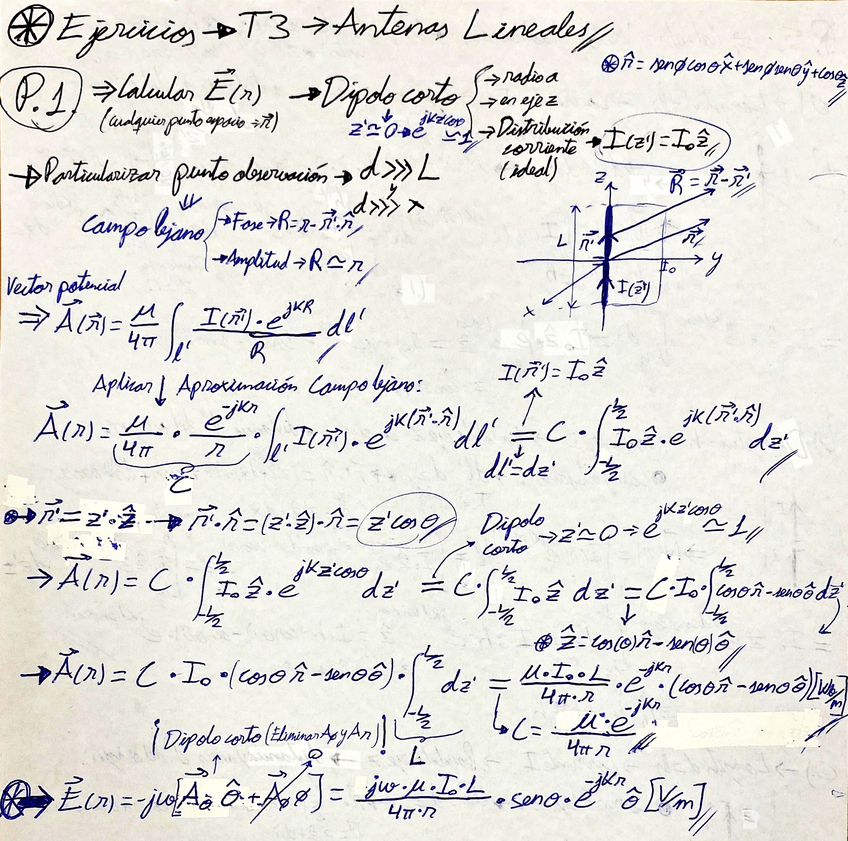 ⊛ Ejercicios → T3 → Antenas Lineales //
⊛ n̂ = senφcosθx̂ + senφsenθŷ + cosθẑ
P.1 ⇒ Calcular E⃗(r) → Dipolo corto { → radio a
(cualquier punto espacio → r⃗)
→ en eje z
z'≃0 → e^{jkz'cosθ} ≃ 1 //
→ Distribución corriente (ideal) → I(z') = I₀ẑ //
→ Particularizar punto observación → d >>> L
y
d >>> λ
Campo lejano { → Fase → R = r - r⃗'·r̂ //
→ Amplitud → R ≃ r //
z
R⃗ = r⃗ - r⃗' //
L
r⃗'
r⃗ //
I₀
y
x
I(z')
Vector potencial
⇒ A⃗(r⃗) = μ/4π ∫_{l'} I(r⃗')·e^{jKR}/R dl' //
Aplicar ↓ Aproximación Campo lejano:
I(r⃗') = I₀ẑ
A⃗(r) = μ/4π · e^{-jKr}/r · ∫_{l'} I(r⃗')·e^{jK(r⃗'·r̂)} dl' = C · ∫_{-L/2}^{L/2} I₀ẑ·e^{jK(r⃗'·r̂)} dz' //
C
dl'=dz'
⊛→ r⃗' = z'·ẑ → r⃗'·r̂ = (z'·ẑ)·r̂ = z'cosθ
Dipolo corto → z'≃0 → e^{jKz'cosθ} ≃ 1 //
→ A⃗(r) = C · ∫_{-L/2}^{L/2} I₀ẑ·e^{jKz'cosθ} dz' = C·∫_{-L/2}^{L/2} I₀ẑ dz' = C·I₀·∫_{-L/2}^{L/2} cosθr̂ - senθθ̂ dz'
⊛ ẑ = cos(θ)r̂ - sen(θ)θ̂ //
→ A⃗(r) = C·I₀·(cosθr̂ - senθθ̂)·∫_{-L/2}^{L/2} dz' = μ·I₀·L/4π·r · e^{-jKr}·(cosθr̂ - senθθ̂) [Wb/m] //
L
C = μ·e^{-jKr}/4πr //
¡Dipolo corto (Eliminar Aφ y Ar)!
0
⊛→ E⃗(r) = -jω[A⃗θ θ̂ + A⃗φ φ̂] = jω·μ·I₀·L/4π·r · senθ·e^{-jKr} θ̂ [V/m] //